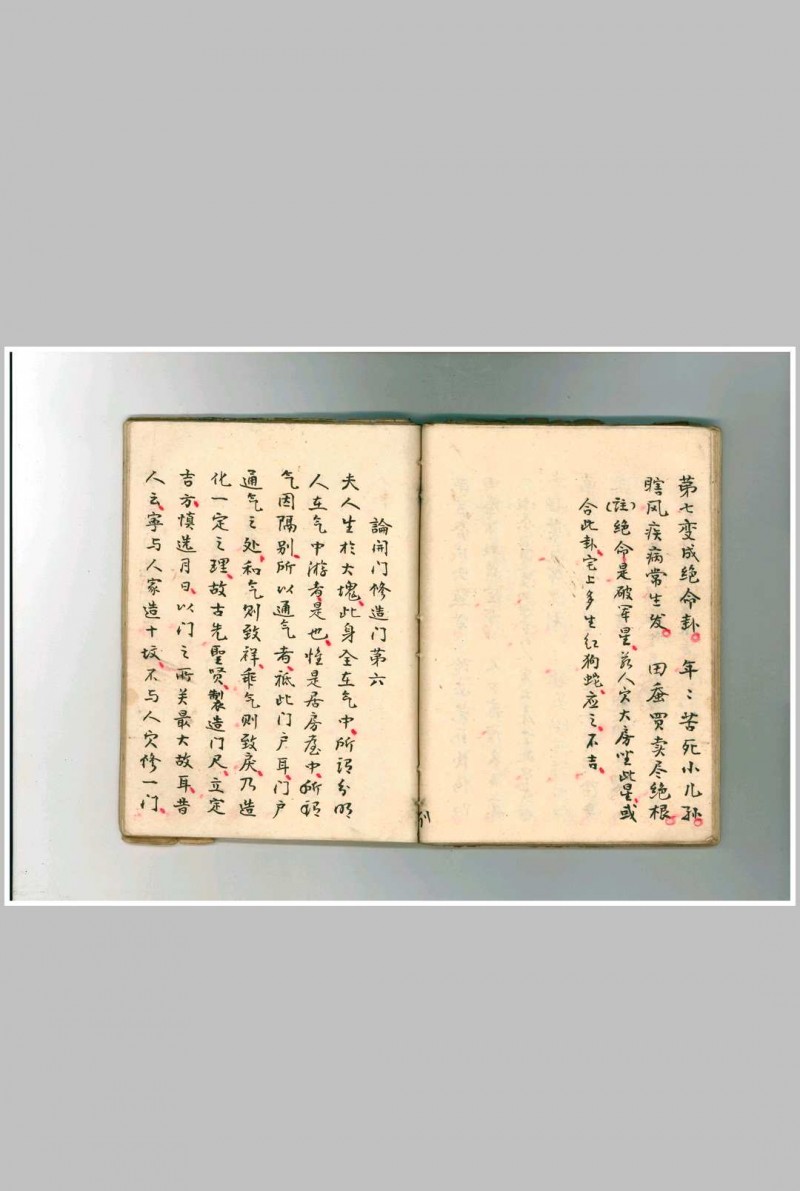 第七变成绝命卦。 年：苦死小儿孙。
瞎风疾病常生发。 田蚕买卖尽绝根。
(註)绝命是破军星、若人穴大房坐此星、或
合此卦、宅上多生红狗蛇、应之不吉、
論開门修造门第六
夫人生於大塊、此身全在气中、所谓分明
人在气中游者、是也、惟是居房屋中、所谓
气因隔别、所以通气者、祗此门户耳、门户
通气之处、和气则致祥、乖气则致戾、乃造
化一定之理、故古先聖贤、製造门尺、立定
吉方、慎选月日、以门之所关最大故耳、昔
人云、寧与人家造十坟、不与人穴修一门、